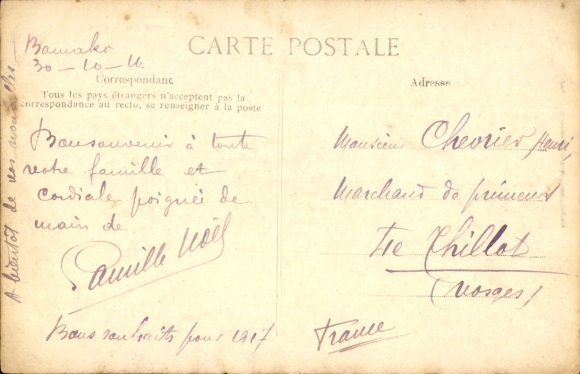 Bamako
30-10-16.
CARTE POSTALE
Correspondanc
Tous les pays étrangers n'acceptent pas la
correspondance au recto, se renseigner à la poste
Bonsouvenir à toute
votre famille et
cordiale poignée de
main de
Camille Noël
Bons souhaits pour 1917
A bientôt de vos nouvelles
Adresse
Monsieur Chevrier Henri,
Marchand de primeurs
Le Thillot
(Vosges)
France